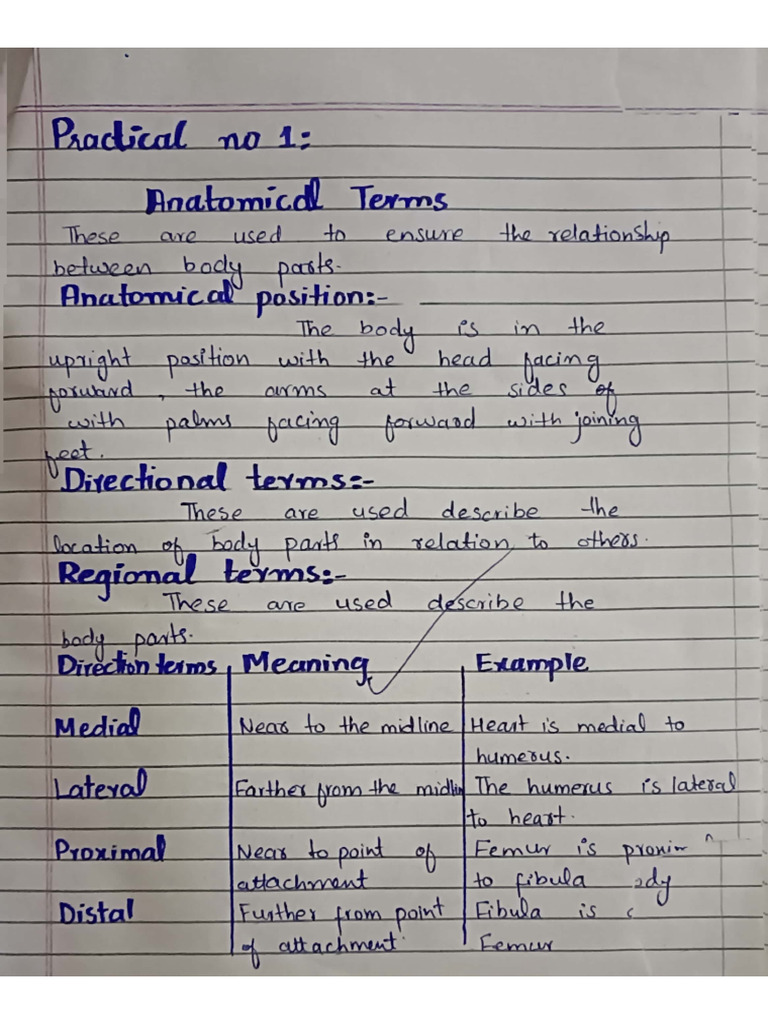 Practical no 1:
Anatomical Terms
These are used to ensure the relationship
between body parts.
Anatomical position:-
The body is in the
upright position with the head facing
forward, the arms at the sides of
with palms facing forward with joining
feet.
Directional terms:-
These are used describe the
location of body parts in relation to others.
Regional terms:-
These are used describe the
body parts.
Direction terms Meaning Example
Medial Near to the midline Heart is medial to
humerus.
Lateral Farther from the midlin The humerus is lateral
to heart.
Proximal Near to point of Femur is proxim
attachment to fibula ody
Distal Further from point Fibula is
of attachment. Femur